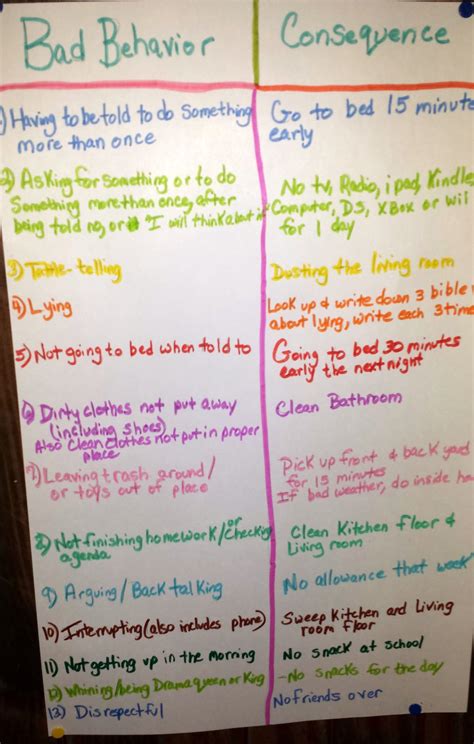 Bad Behavior
Consequence
1) Having to be told to do something
more than once
Go to bed 15 minute
early
2) Asking for something or to do
Something more than once, after
being told no, or "I will think about it"
No tv, Radio, i pad, Kindle,
Computer, DS, XBox or wii
for 1 day
3) Tattle-telling
Dusting the living room
4) Lying
Look up & write down 3 bible
about lying, write each 3 time
5) Not going to bed when told to
Going to bed 30 minutes
early the next night
6) Dirty clothes not put away
(including shoes)
Also Clean Clothes not put in proper
place
Clean Bathroom
7) Leaving trash around/
or toys out of place
Pick up front & back yard
for 15 minutes
If bad weather, do inside
8) Not finishing homework/or Checking
agenda
Clean Kitchen floor &
Living room
9) Arguing/Back talking
No allowance that week
10) Interrupting (also includes phone)
Sweep Kitchen and Living
room floor
11) Not getting up in the morning
No snack at school
12) Whining/being Drama queen or King
- No snacks for the day
13) Disrespectful
No friends over